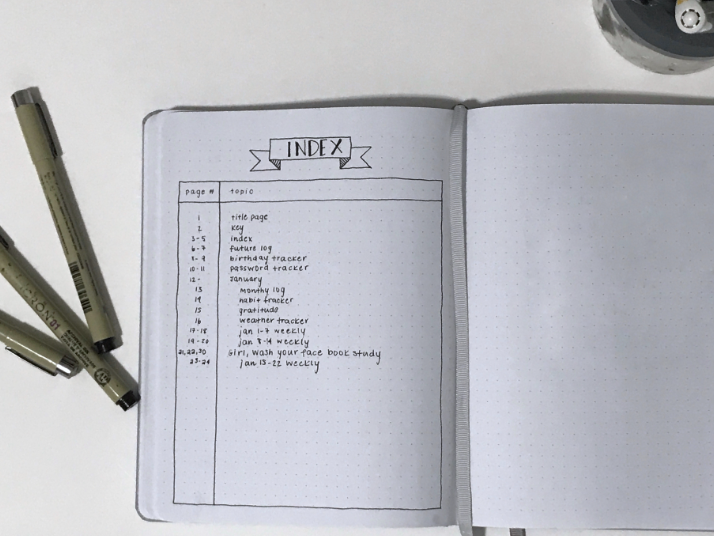 INDEX
page # topic
1 title page
2 key
3-5 index
6-7 future log
8-9 birthday tracker
10-11 password tracker
12- January
13 monthy log
14 habit tracker
15 gratitude
16 weather tracker
17-18 jan 1-7 weekly
19-20 jan 8-14 weekly
21,22,30 Girl, wash your face book study
23-24 jan 15-22 weekly
MICRON 01